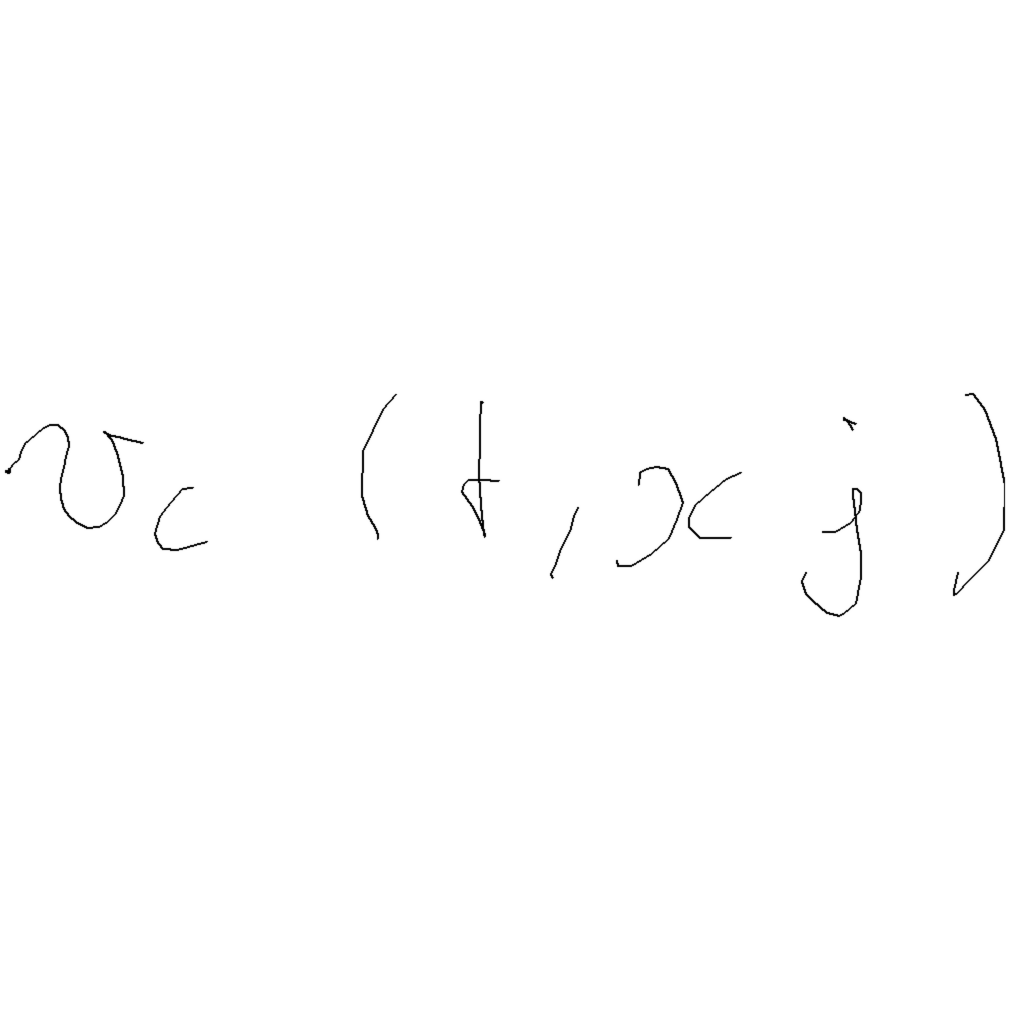 v_c (t, x_j)